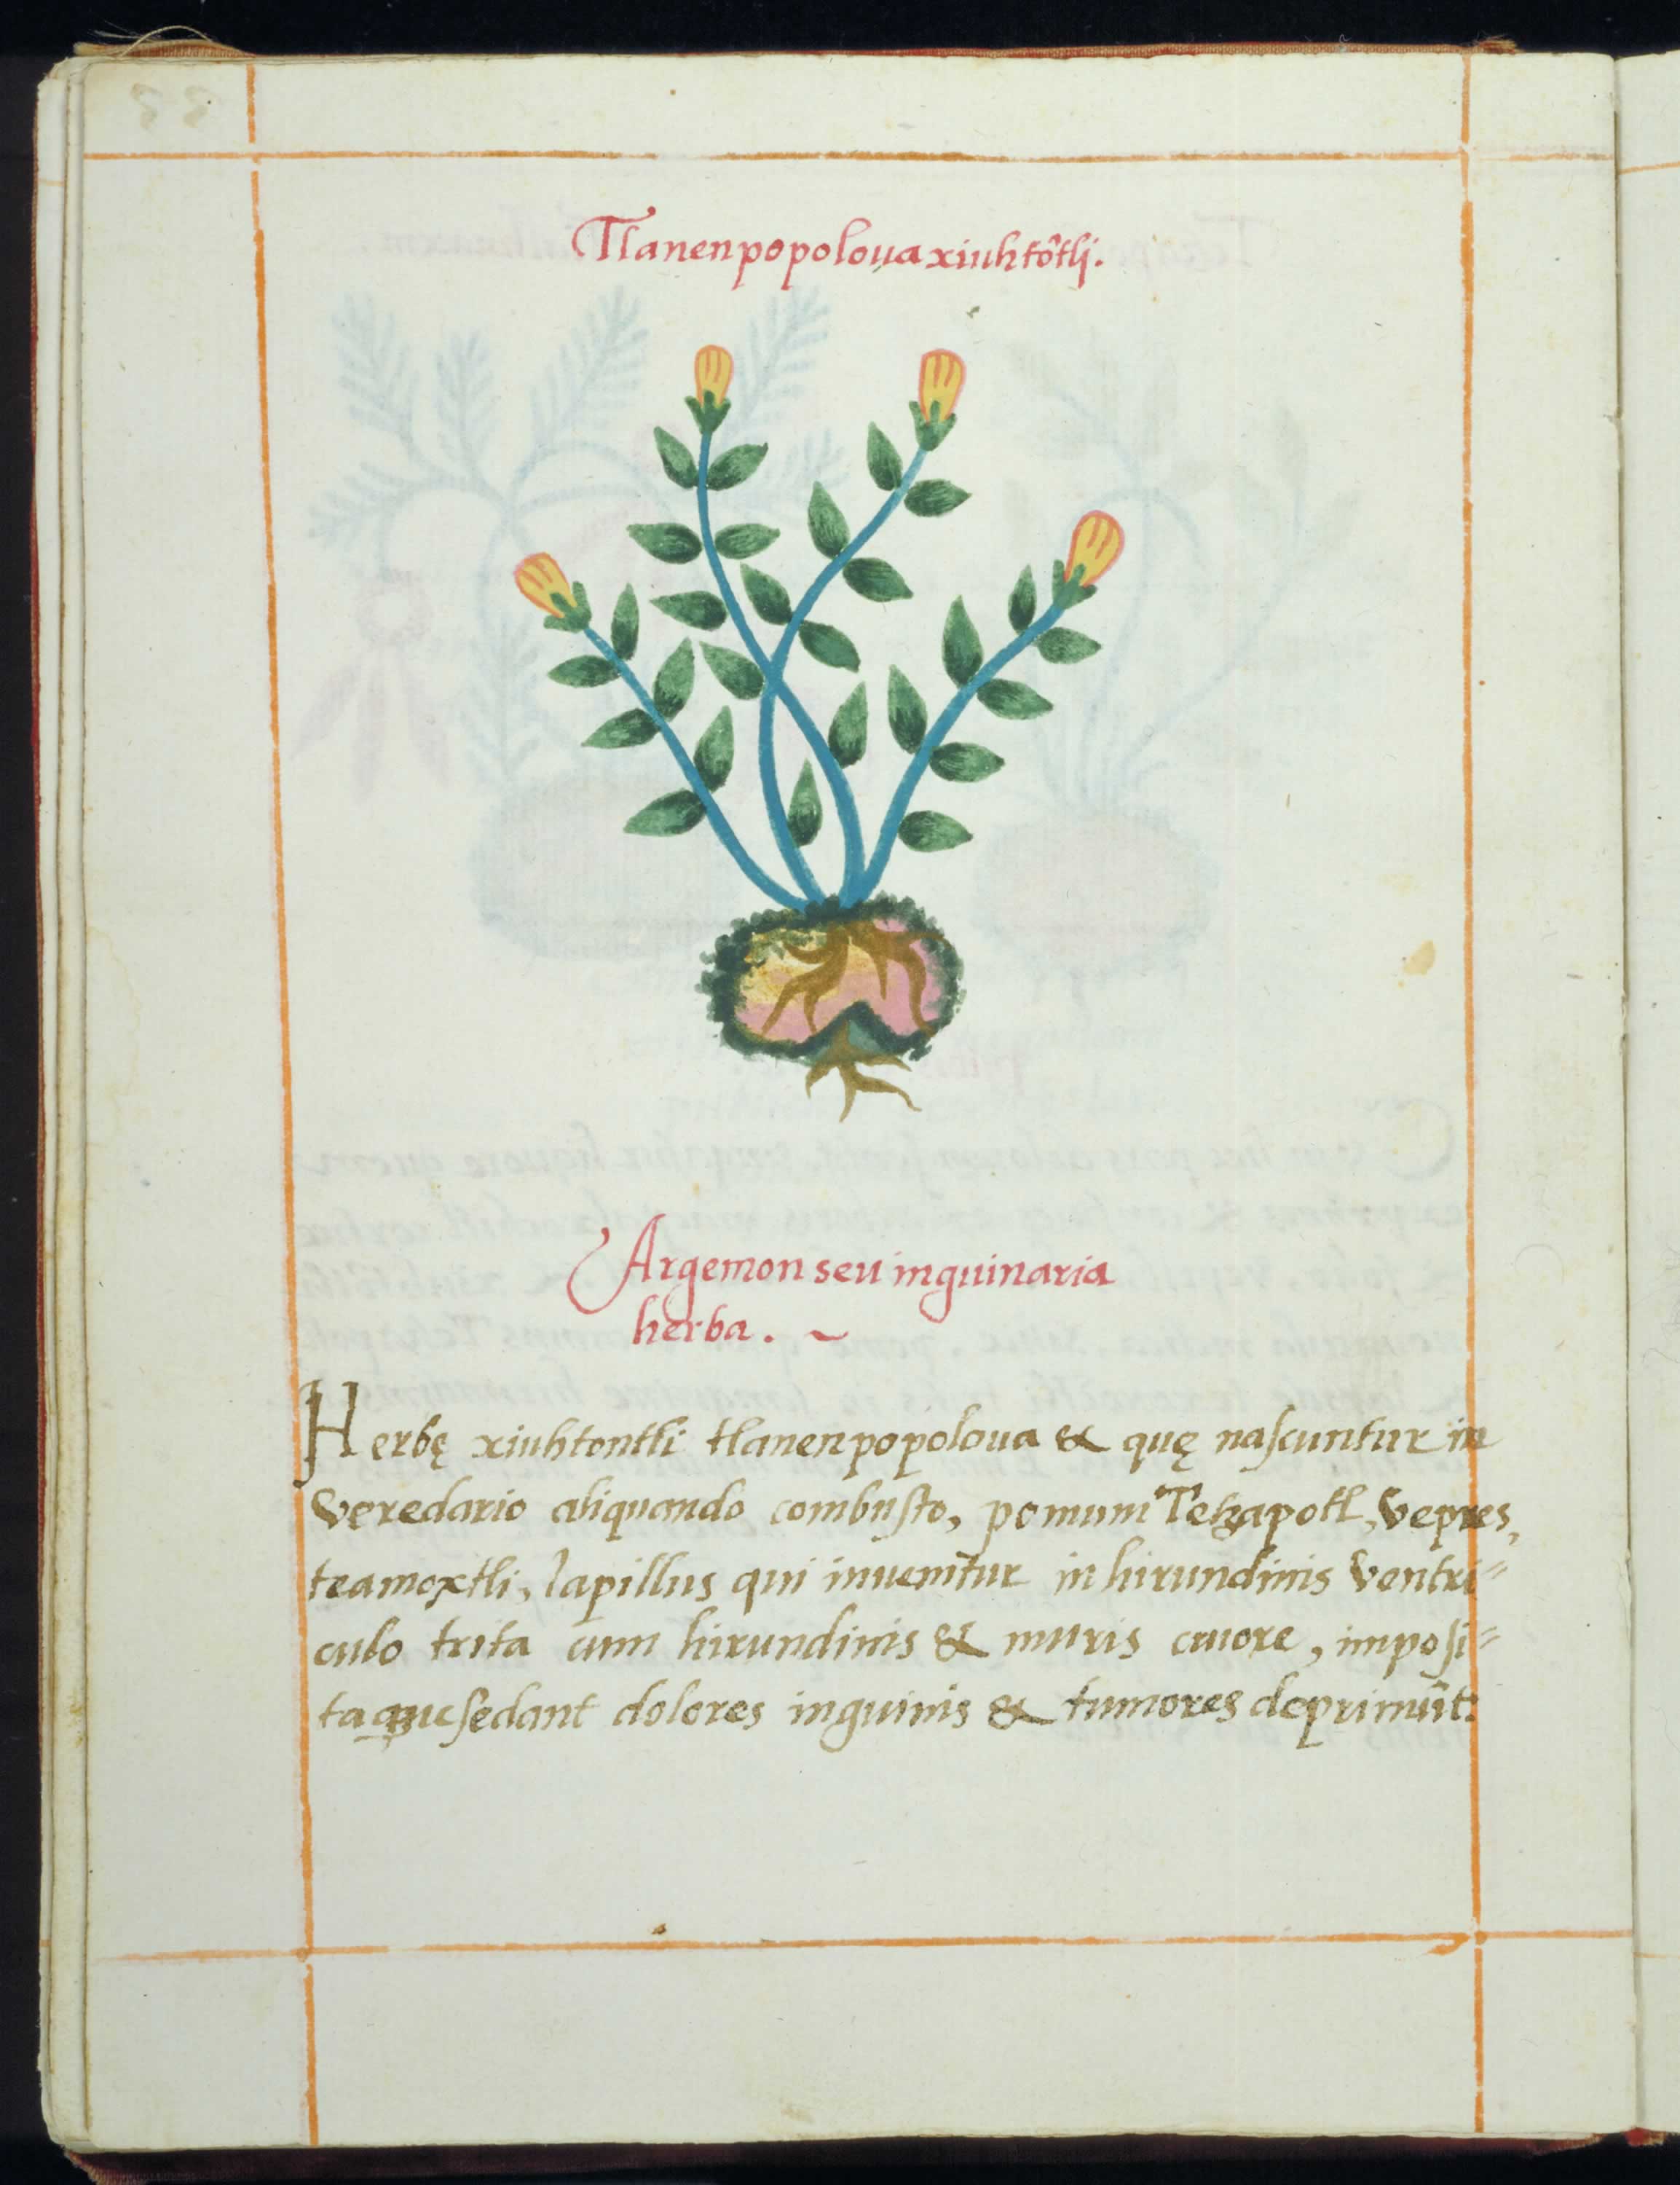 Tlanenpopoloua xiuhtôtli.
Argemon seu inguinaria
herba. ~
Herbę xiuhtontli tlanenpopoloua & quę naſcuntur in
veredario aliquando combuſto, pomum Tetzapotl, vepres,
teamoxtli, lapillus qui inuenitur in hirundinis ventri=
culo trita cum hirundinis & muris cruore, impoſi=
taque ſedant dolores inguinis & tumores deprimût.